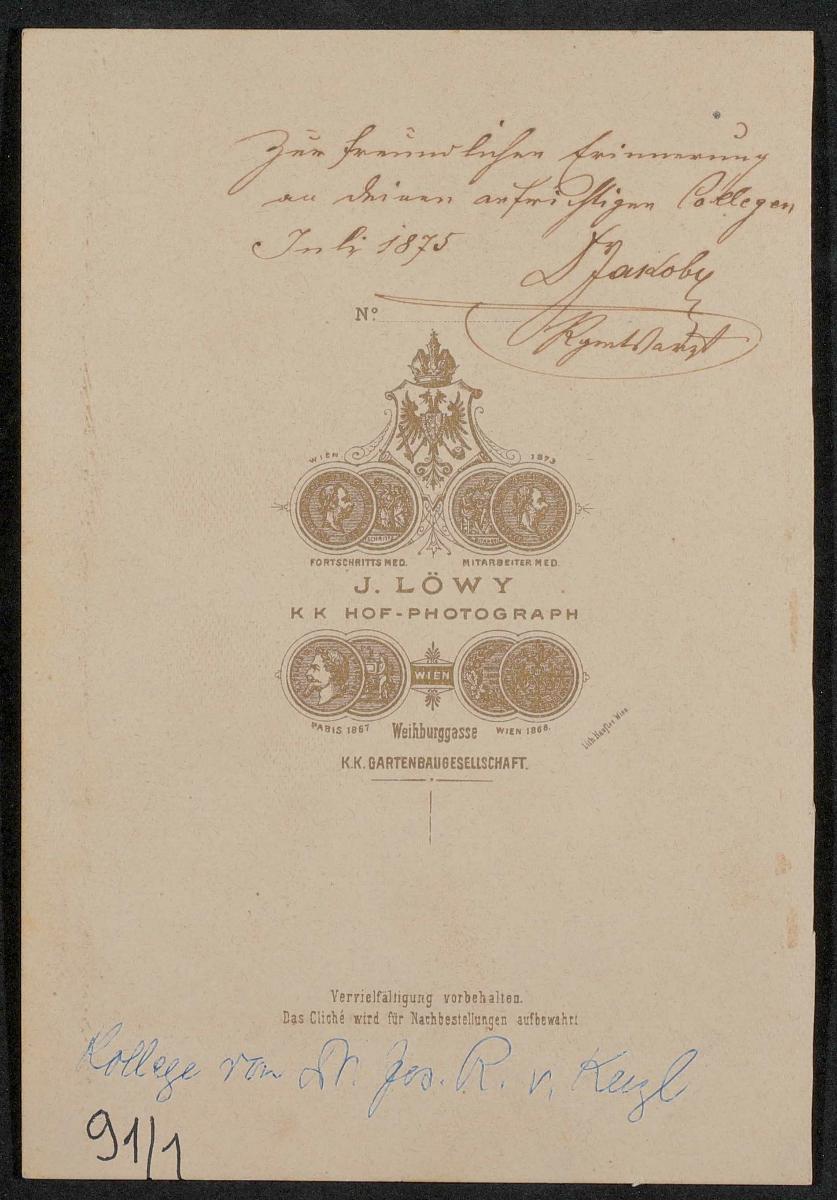 Zur freundlichen Erinnerung
an deinen aufrichtigen Collegen
Juli 1875
Dr Jakoby
Rgmtsarzt
No.
WIEN 1873
FORTSCHRITTS MED. MITARBEITER MED.
J. LÖWY
K K HOF-PHOTOGRAPH
WIEN
PARIS 1867 Weihburggasse WIEN 1868.
K.K. GARTENBAUGESELLSCHAFT.
Vervielfältigung vorbehalten.
Das Cliché wird für Nachbestellungen aufbewahrt
Kollege von Dr. Jos. R. v.
91/1